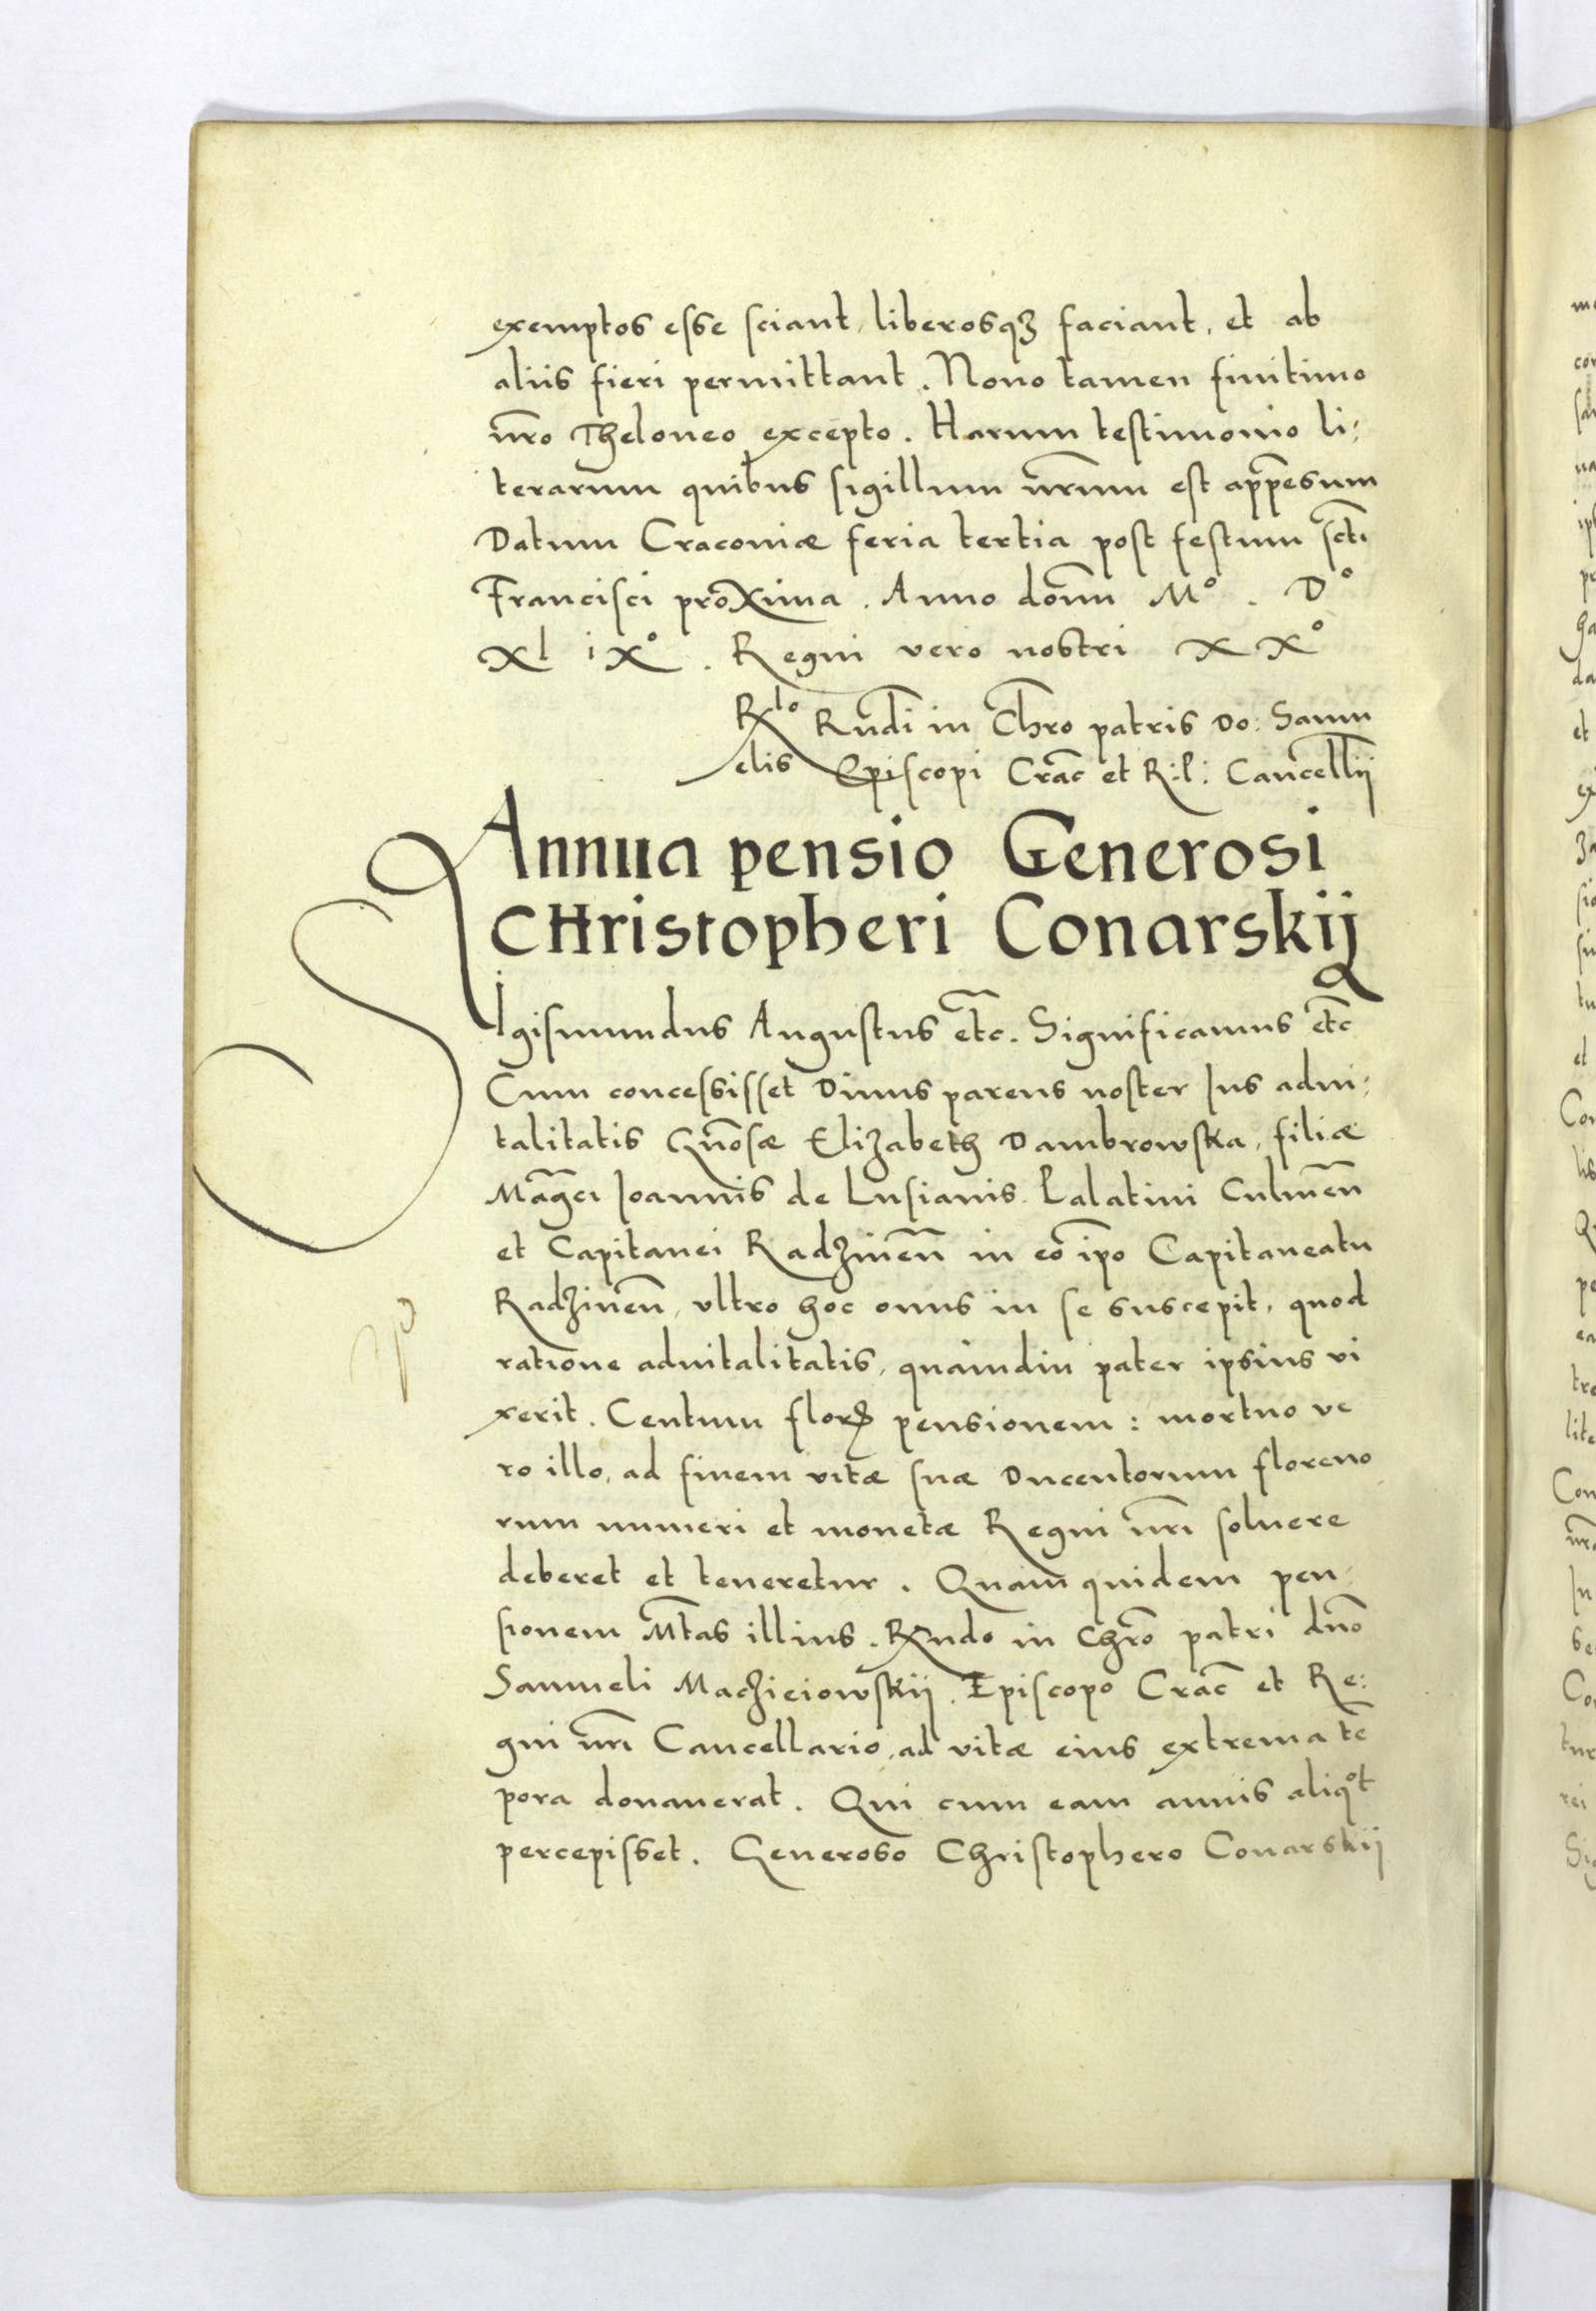 exemptos esse sciant, liberosqʒ faciant, et ab
aliis fieri permittant. Nono tamen finitimo
nr̃o Theloneo excepto. Harum testimonio li:
terarum quibus sigillum nr̃um est app̃esum
Datum Craconiæ feria tertia post festum sct̃i
Francisci proxima. Anno dom̃ Mº. Dº
Xl iXº. Regni vero nostri XXº
Rlo Rñdi in Chr̃o patris Do: Samu
elis Episcopi Crac̃ et R: P: Cancellij
Annua pensio Generosi
CHristopheri Conarskij
SIgismundus Augustus etc̃. Significamus etc̃
Cum concessisset Diuus parens noster Ius adui:
talitatis Gñosæ Elizabeth Dambrowska, filiæ
Mag̃ci Ioannis de Lusianis. Palatini Culmeñ
et Capitanei Radzineñ in eo ip̃o Capitaneatu
Radzineñ, vltro hoc onus in se suscepit, quod
ratione aduitalitatis, quamdiu pater ipsius vi
xerit. Centum florꝝ pensionem: mortuo ve
ro illo, ad finem vitæ suæ Ducentorum floreno
rum numeri et monetæ Regni nr̃i soluere
deberet et teneretur. Quam quidem pen:
sionem Mt̃as illius. Rx̃ndo in Chr̃o patri dño
Samueli Macʒieiowskij. Episcopo Crac̃ et Re:
gni nr̃i Cancellario, ad vitæ eius extrema tẽ
pora donauerat. Qui cum eam annis aliqot
percepisset. Generoso Christophero Conarskij